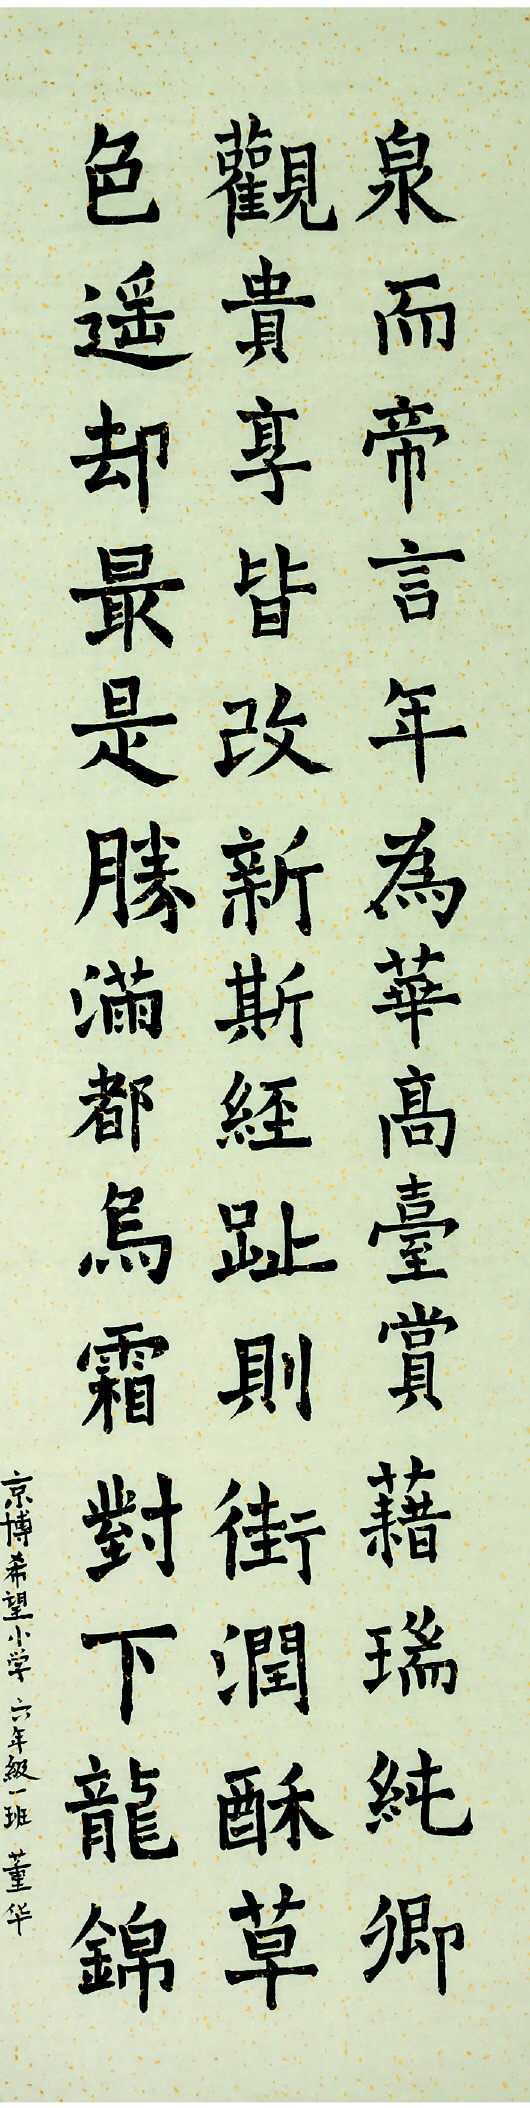 泉而帝言年為華高臺賞藉瑞純卿
觀貴享皆改新斯經趾則街潤酥草
色遥却最是勝滿都烏霜對下龍錦
京博希望小学六年級一班董华